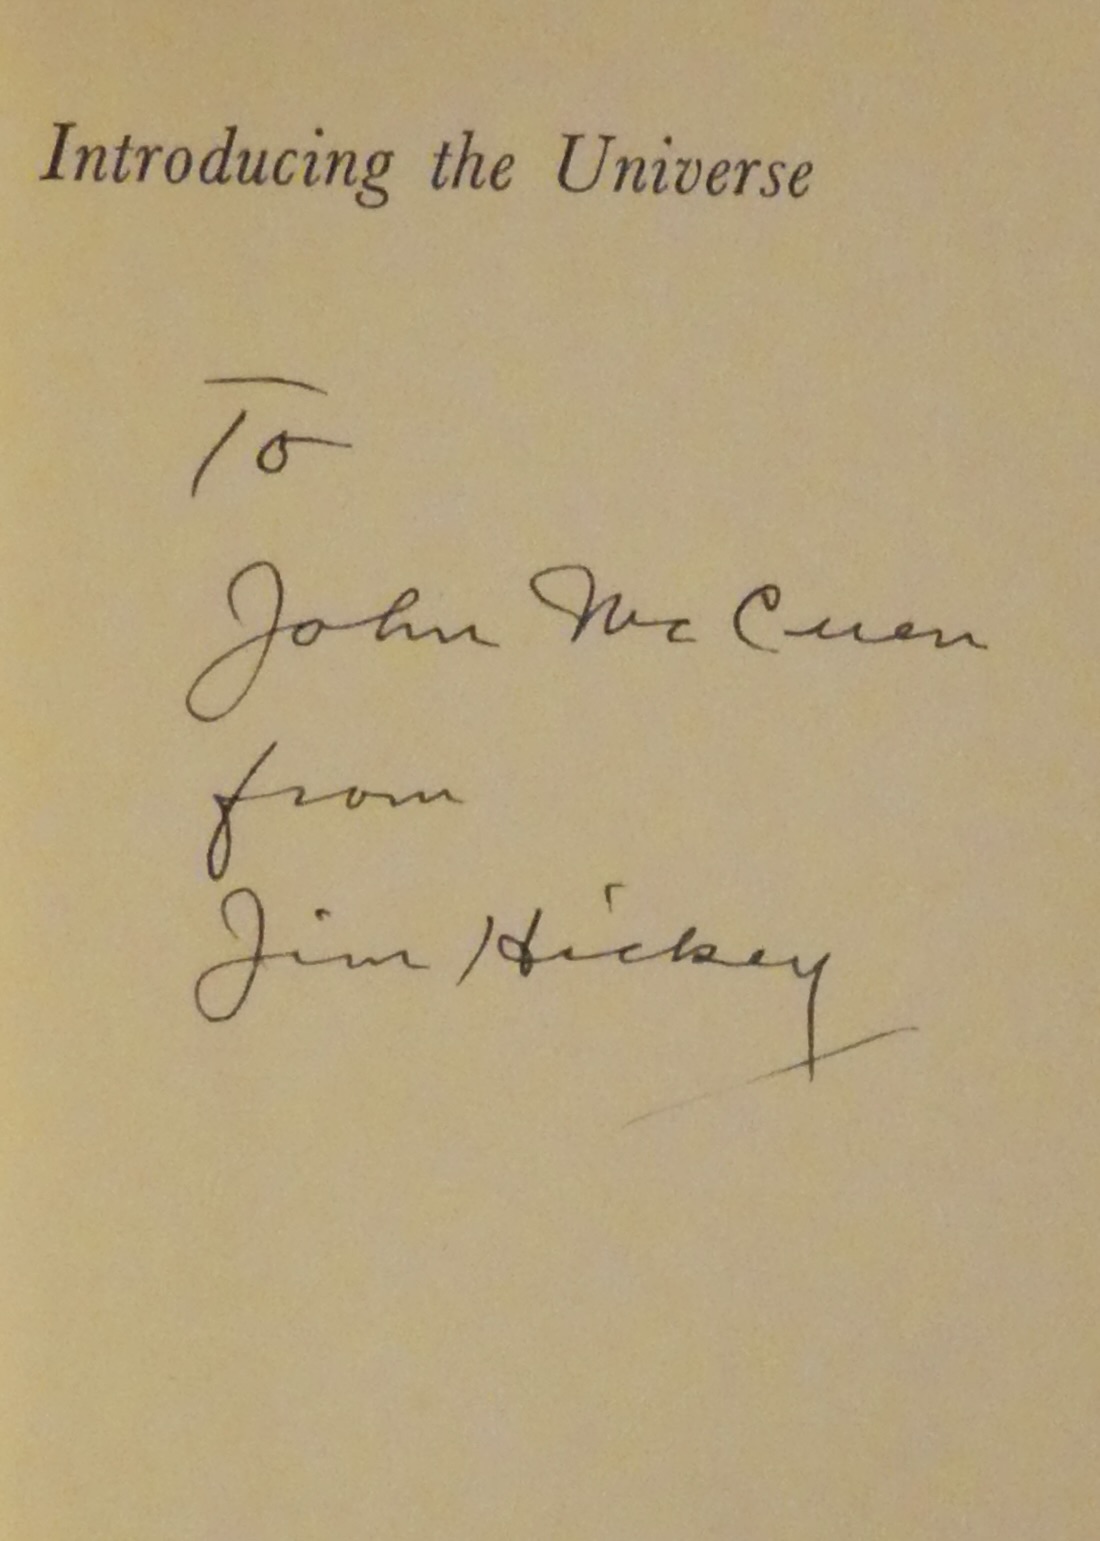 Introducing the Universe
To
John McCuen
from
Jim Hickey